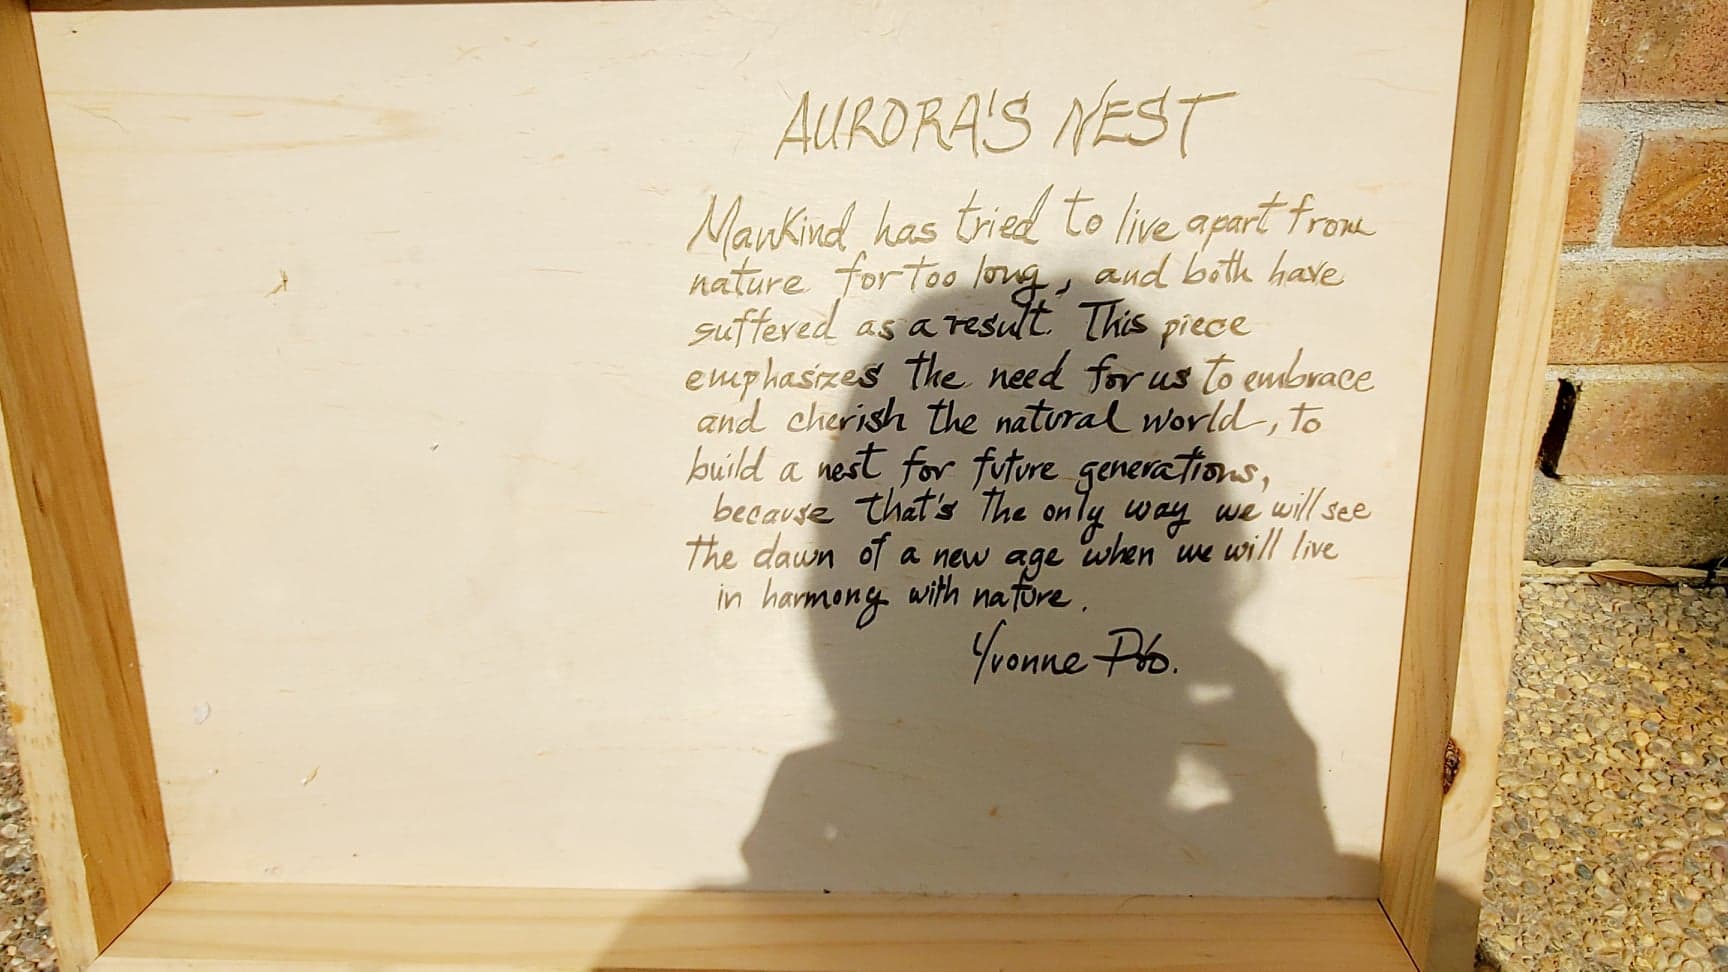 AURORA'S NEST
Mankind has tried to live apart from
nature for too long, and both have
suffered as a result. This piece
emphasizes the need for us to embrace
and cherish the natural world, to
build a nest for future generations,
because that's the only way we will see
the dawn of a new age when we will live
in harmony with nature.
Yvonne